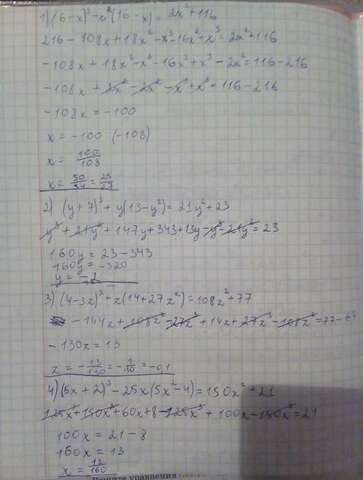 1) (6-x)³ - x²(16-x) = 2x² + 116
216 - 108x + 18x² - x³ - 16x² + x³ = 2x² + 116
-108x + 18x² - x³ - 16x² + x³ - 2x² = 116 - 216
-108x + 2x² - 2x² - x³ + x³ = 116 - 216
-108x = -100
x = -100 (-108)
x = 100/108
x = 50/54 = 25/27
2) (y+7)³ + y(13-y²) = 21y² + 23
y³ + 21y² + 147y + 343 + 13y - y³ - 21y² = 23
160y = 23 - 343
160y = -320
y = -2
3) (4-3z)³ + z(14+27z²) = 108z² + 77
-144z + 108z² - 27z³ + 14z + 27z³ - 108z² = 77 - 6
-130z = 13
z = -13/130 = -1/10 = -0,1
4) (5x+2)³ - 25x(5x²-4) = 150x² + 21
125x³ + 150x² + 60x + 8 - 125x³ + 100x - 150x² = 21
100x = 21 - 8
160x = 13
x = 13/160
уравнения